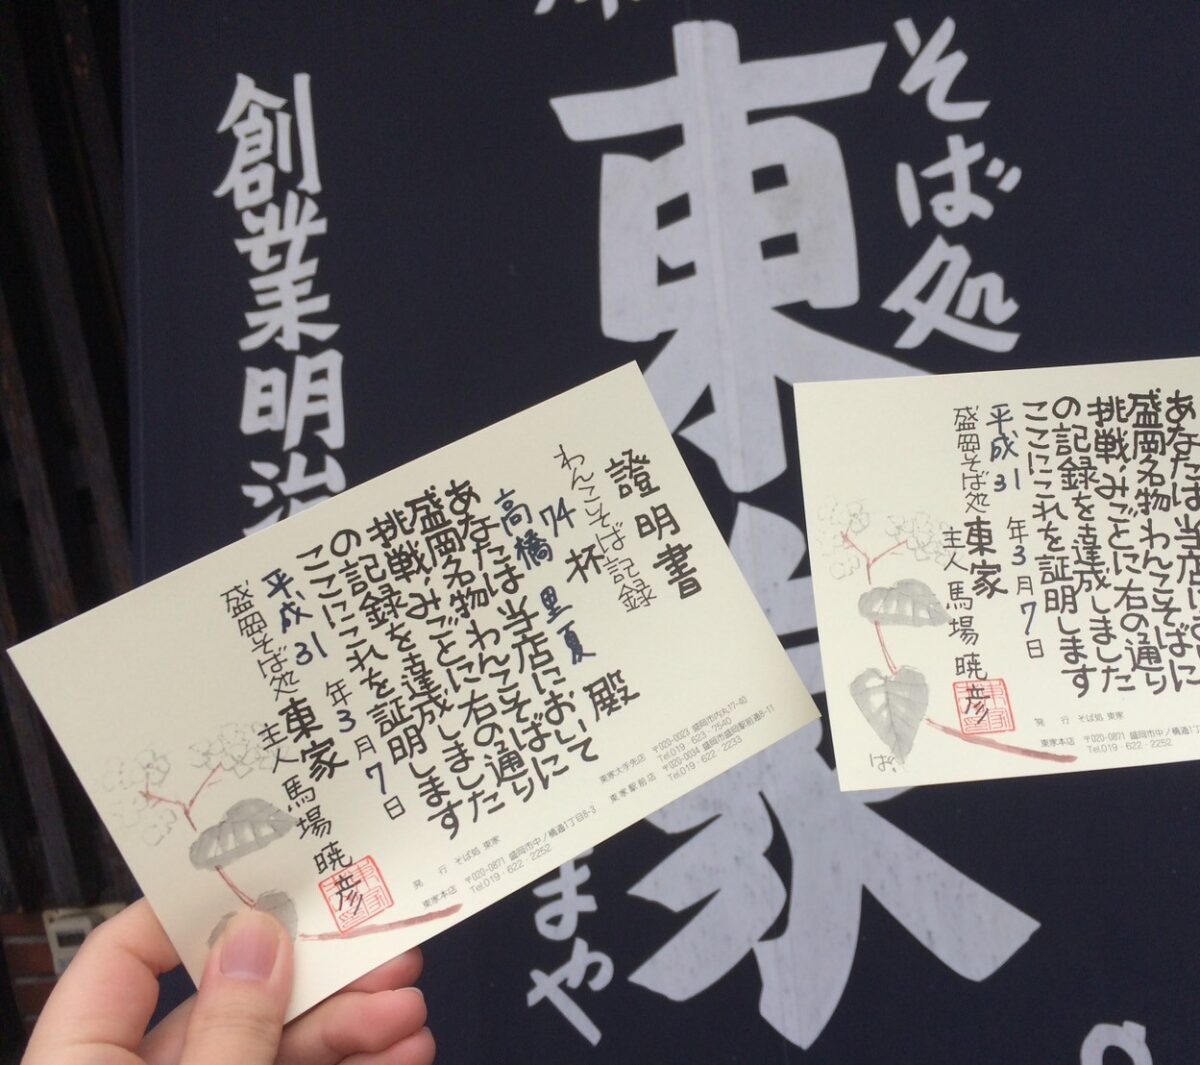 そば処
東家
創業明治
まや
證明書
わんこそば記録
74杯
高橋 里夏 殿
あなたは当店において
盛岡名物わんこそばに
挑戦、みごとに右の通り
の記録を達成しました
ここにこれを証明します
平成31年3月7日
盛岡そば処 東家
主人 馬場暁彦
発 行 そば処 東家
東家本店 〒020-0871 盛岡市中ノ橋通1丁目8-3
Tel.019・622・2252
東家大手先店 〒020-0023 盛岡市内丸17-40
Tel.019・623・7540
東家駅前店 〒020-0034 盛岡市盛岡駅前通8-11
Tel.019・622・2233
あなたは当店に
盛岡名物わんこそばに
挑戦、みごとに右の通り
の記録を達成しました
ここにこれを証明します
平成31年3月7日
盛岡そば処 東家
主人 馬場暁彦
そば
発 行 そば処 東家
東家本店 〒020-0871 盛岡市中ノ橋通1丁
Tel.019・622・2252